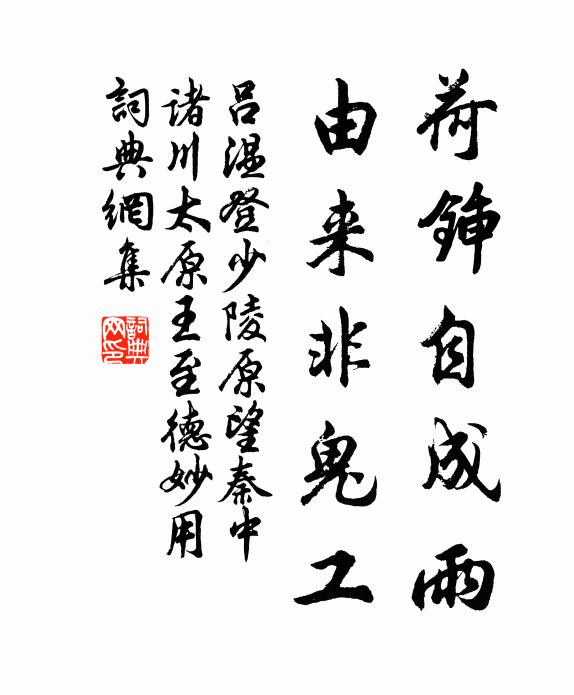 荷鍤自成雨
由来非鬼工
呂温登少陵原望秦中
諸川太原王至德妙用
詞典網集
詞典
网印